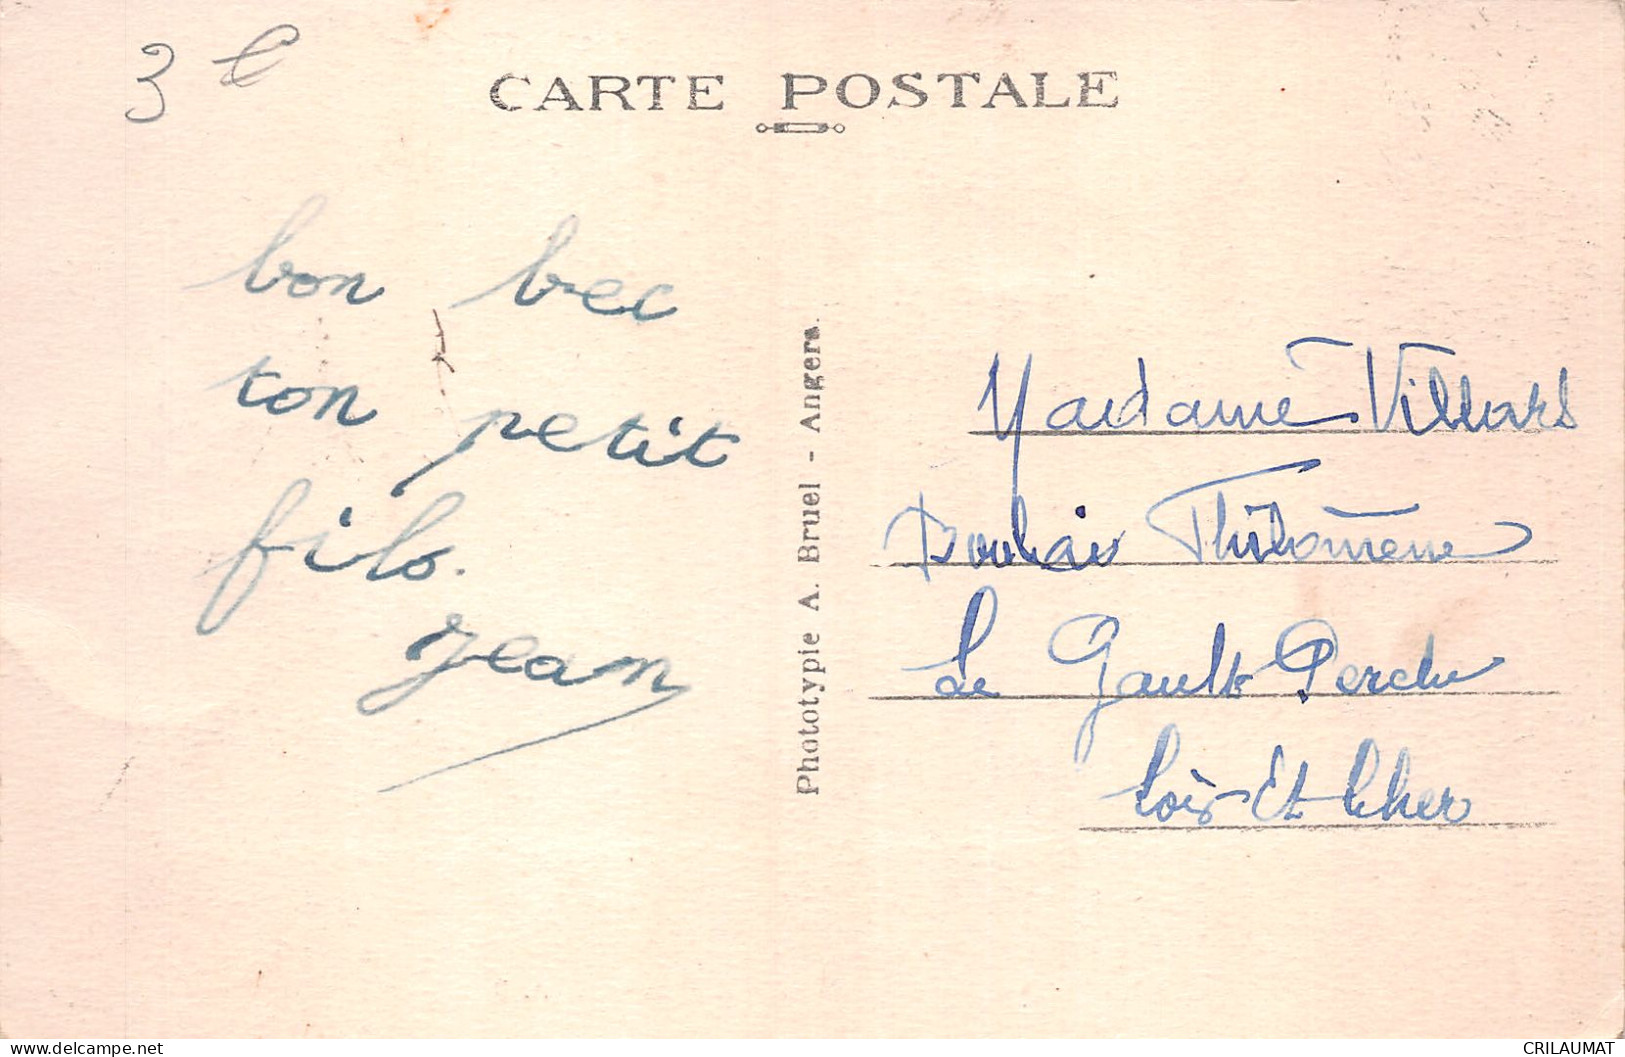 3 €
CARTE POSTALE
bon bec
ton petit
fils.
Jean
Phototypie A. Bruel - Angers.
Madame Villard
Thilomène
Le Gault Perche
Loir-Et-Cher
CRILAUMAT